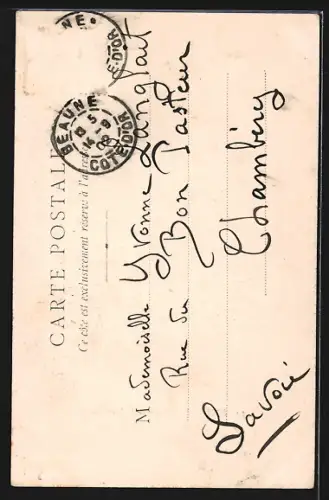 CARTE POSTALE
Ce côté est exclusivement réservé à l'adresse
BEAUNE
CÔTE-D'OR
NE
E-D'OR
Mademoiselle Yvonne
Rue du Bon Pasteur
Chambéry
Savoie